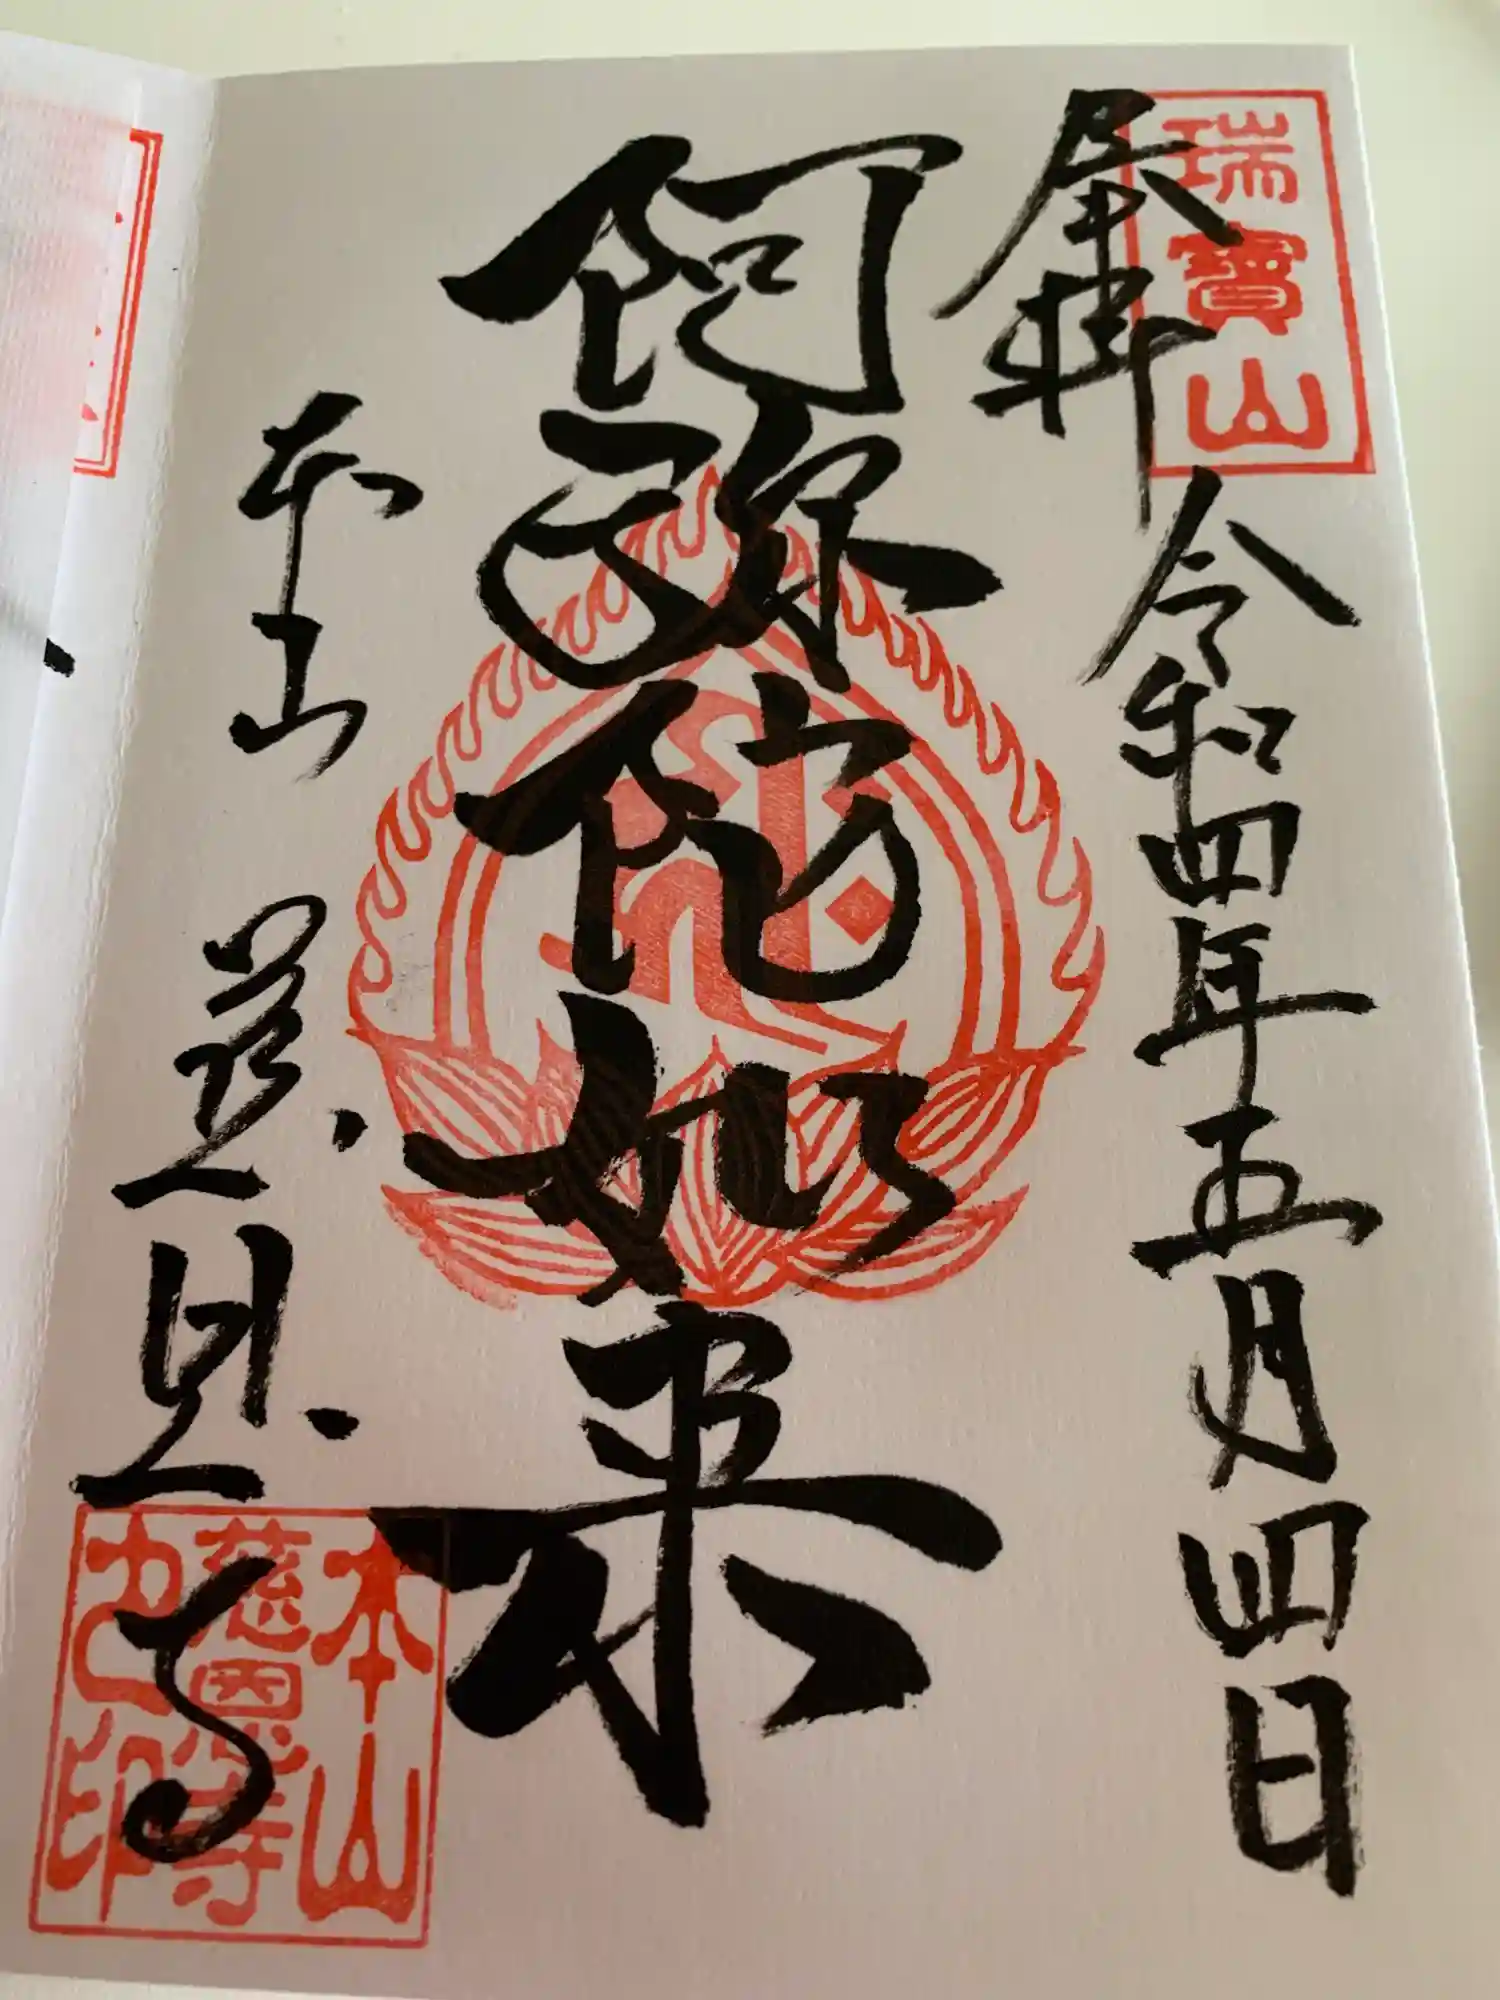 奉拝
瑞寶山
令和四年五月四日
阿弥陀如来
本山 慈恩寺
本山
慈恩寺
之印